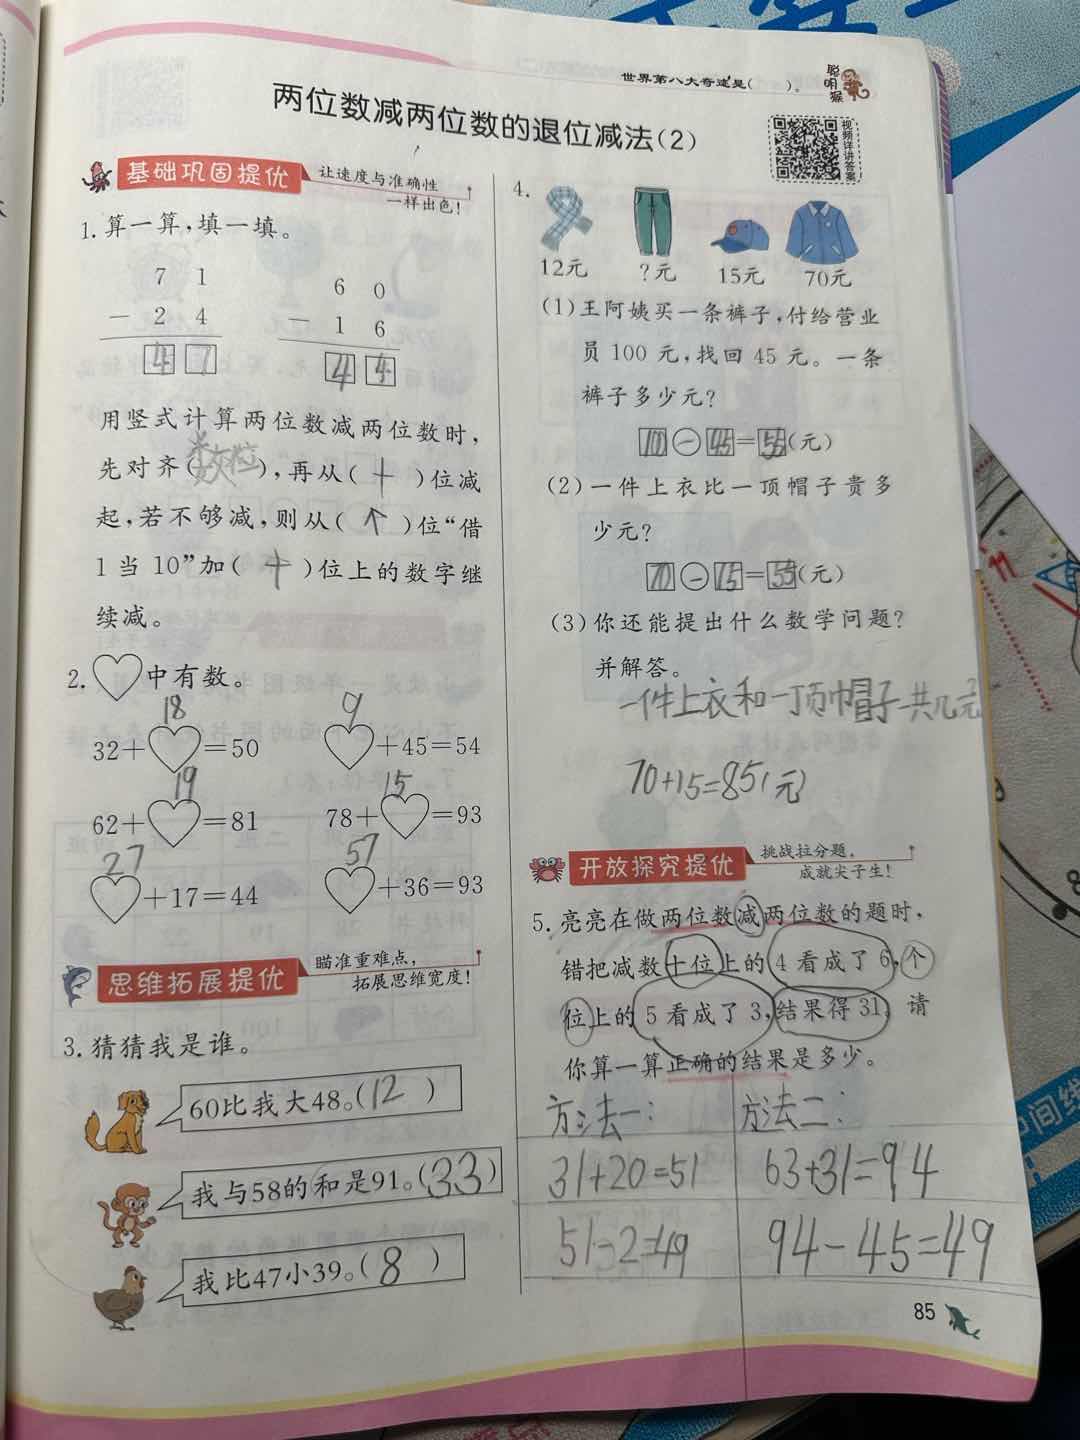 世界第八大奇迹是(      )。
聪明猴
两位数减两位数的退位减法(2)
视频详讲答案
基础巩固提优
让速度与准确性
一样出色!
1.算一算,填一填。
7 1
- 2 4
4 7
6 0
- 1 6
4 4
用竖式计算两位数减两位数时,
先对齐(数位),再从(十)位减
起,若不够减,则从(个)位“借
1当10”加(十)位上的数字继
续减。
2.♡中有数。
18
32+♡=50
9
♡+45=54
19
62+♡=81
15
78+♡=93
27
♡+17=44
57
♡+36=93
思维拓展提优
瞄准重难点,
拓展思维宽度!
3.猜猜我是谁。
60比我大48。(12)
我与58的和是91。(33)
我比47小39。(8)
4.
12元 ?元 15元 70元
(1)王阿姨买一条裤子,付给营业
员100元,找回45元。一条
裤子多少元?
100-45=55(元)
(2)一件上衣比一顶帽子贵多
少元?
70-15=55(元)
(3)你还能提出什么数学问题?
并解答。
一件上衣和一顶帽子一共几元?
70+15=85(元)
开放探究提优
挑战拉分题,
成就尖子生!
5.亮亮在做两位数减两位数的题时,
错把减数十位上的4看成了6,个
位上的5看成了3,结果得31。请
你算一算正确的结果是多少。
方法一:
31+20=51
51-2=49
方法二:
63+31=94
94-45=49
85
中间线
11